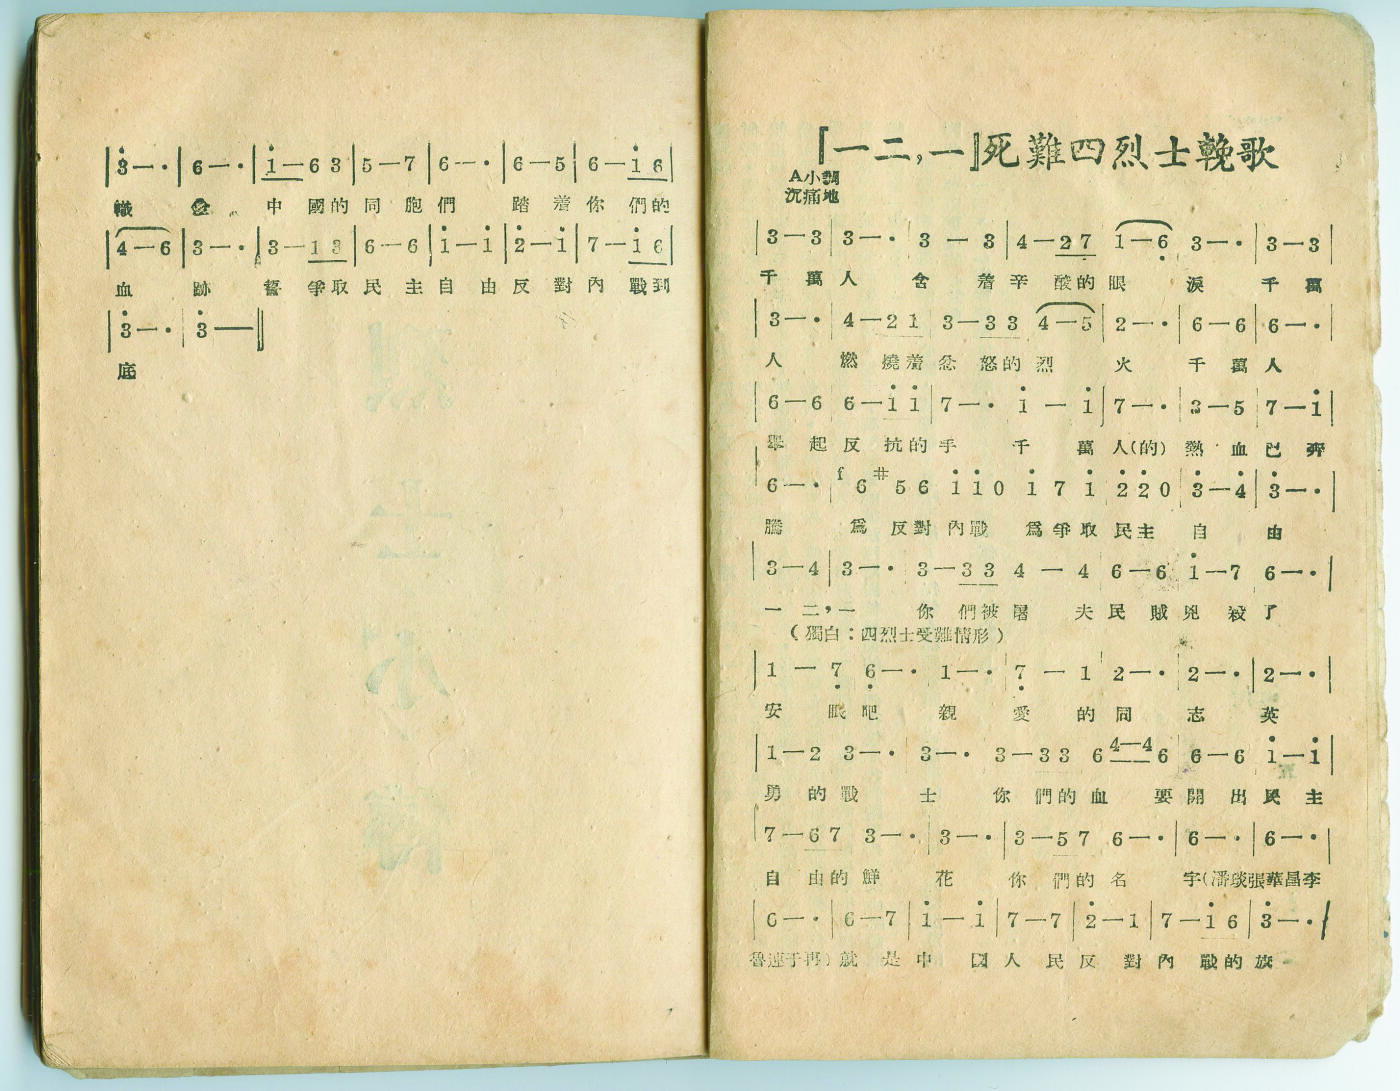 『一二，一』死難四烈士輓歌
A小調
沉痛地
3—3|3—·|3 — 3|4—2 7|1—6|3—·|3—3|
千 萬 人 含 着 辛 酸 的 眼 淚 千 萬
3—·|4—2 1|3—3 3|4—5|2—·|6—6|6—·|
人 燃 燒 着 忿 怒 的 烈 火 千 萬 人
6—6|6—i i|7—·|i — i|7—·|3—5|7—i|
舉 起 反 抗 的 手 千 萬 人(的) 熱 血 已 奔
6—·|f 6 #5 6|i i 0|i 7 i|2 2 0|3—4|3—·|
騰 爲 反 對 內 戰 爲 爭 取 民 主 自 由
3—4|3—·|3—3 3|4 — 4|6—6|i—7|6—·|
一 二，一 你 們 被 屠 夫 民 賊 兇 殺 了
（獨白：四烈士受難情形）
|1 — 7|6—·|1—·|7 — 1|2—·|2—·|2—·|
安 眠 吧 親 愛 的 同 志 英
|1—2|3—·|3—·|3—3 3|6 4—4 6|6—6|i—i|
勇 的 戰 士 你 們 的 血 要 開 出 民 主
7—6 7|3—·|3—·|3—5 7|6—·|6—·|6—·|
自 由 的 鮮 花 你 們 的 名 字(潘琰張華昌李
6—·|6—7|i—i|7—7|2—1|7—i 6|3—·|
魯連于再) 就 是 中 國 人 民 反 對 內 戰 的 旗
|3—·|6—·|i—6 3|5—7|6—·|6—5|6—i 6|
幟 愛 中 國 的 同 胞 們 踏 着 你 們 的
|4—6|3—·|3—1 3|6—6|i—i|2—i|7—i 6|
血 跡 誓 爭 取 民 主 自 由 反 對 內 戰 到
|3—·|3——‖
底